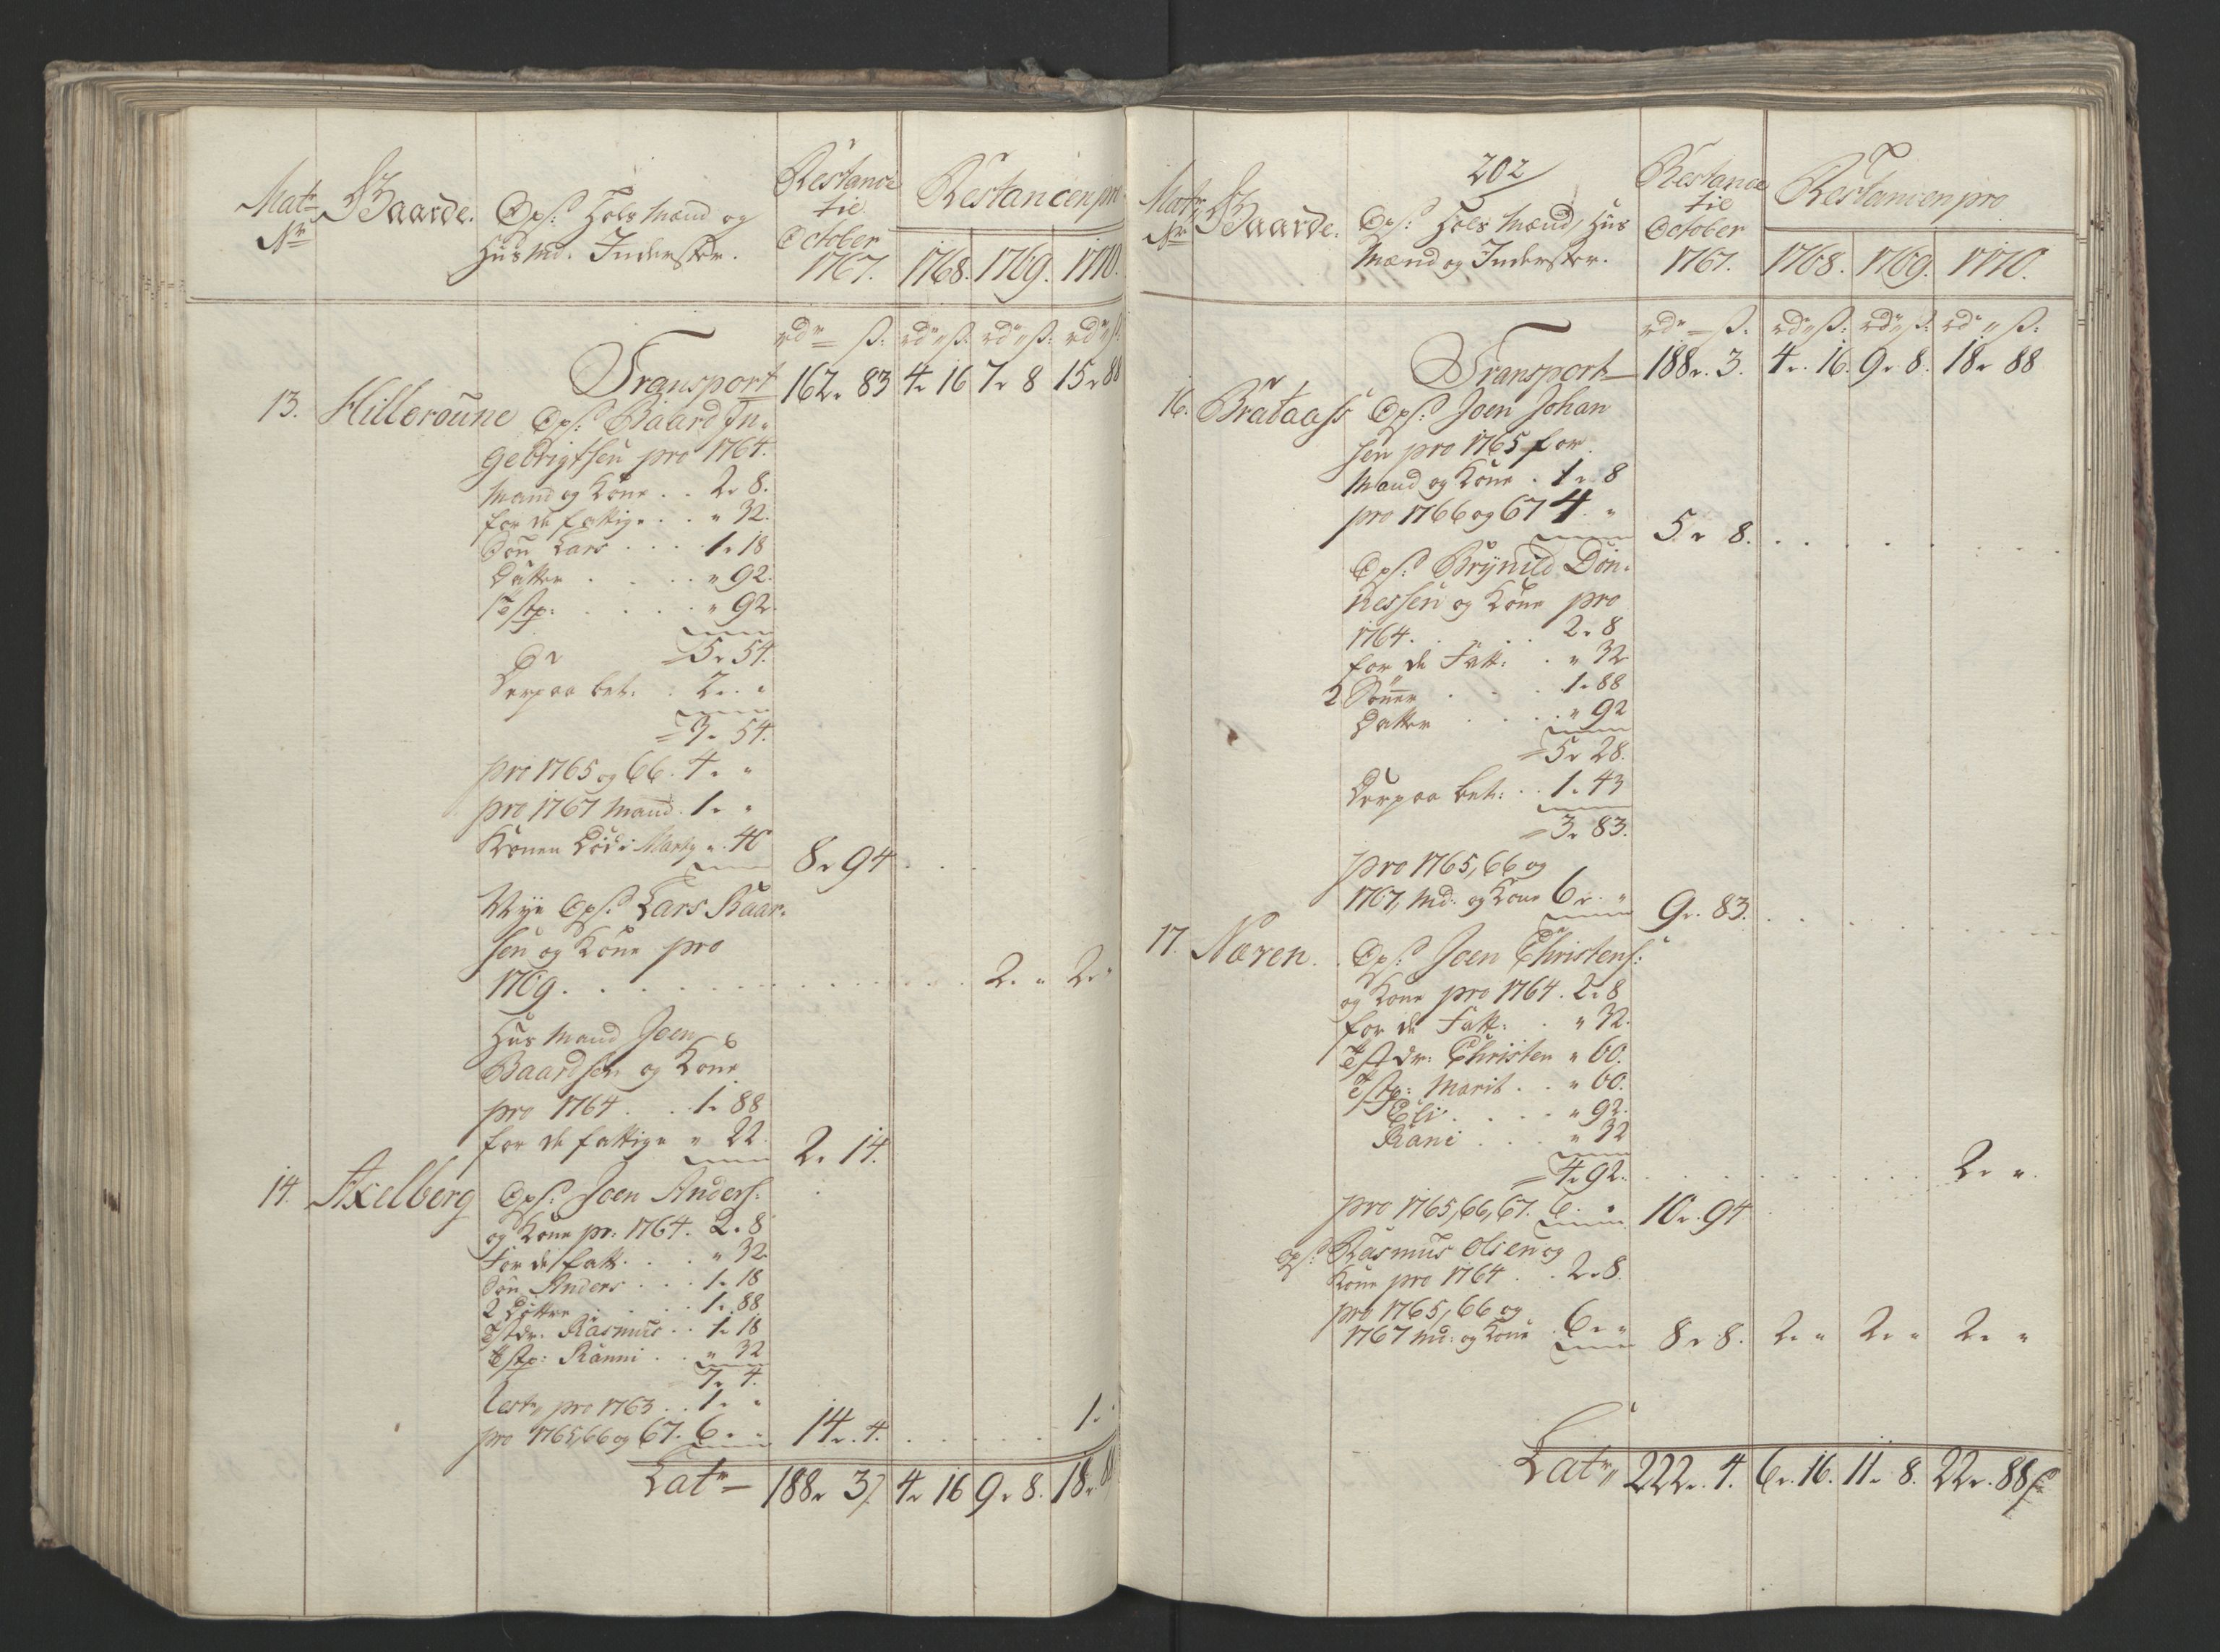 Matr
Nr
Gaarde.
Ops: Folk Mænd og
Huusmd. Inderster.
Restance
til
October
1767.
Restancen pro
1768. 1769. 1770.
rdr ß: rd ß: rd ß: rd ß:
Transport 162 " 83 4 " 16 7 " 8 15 " 88
13. Hilleroune Ops: Baard In-
gebrigtsen pro 1764.
Mand og Kone . . 2 " 8.
for de fattige . . " 32.
Søn Lars . . . 1 " 18
Datter . . . . " 92.
Tstp: . . . . " 92.
Er 5 " 54.
Derpaa bet: . 2 " "
3 " 54.
pro 1765 og 66. 4 " "
pro 1767 Mand. 1 " "
Konen død i " 40 8 " 94
Nye Ops: Lars Baar-
sen og Kone pro
1769 . . . . . . . 2 " " 2 "
Huusmand Joen
Baardsen og Kone
pro 1764 . . 1 " 88
for de fattige " 22. 2 " 14.
14. Axelberg Ops: Joen Anders:
og Kone pr: 1764. 2 " 8
For de fatt. . . " 32
Søn Anders . . . 1 " 18
2 Døttre . . . 1 " 88
Tstdr. Rasmus . . 1 " 18
Tstp: Ranni . . " 32
7 " 4.
Rest pro 1763 . . 1 " "
pro 1765, 66 og 67. 6 " " 14 " 4. . . . . 1 "
Latr 188 " 3 4 " 16 9 " 8. 18 " 88
202
Matr
Nr
Gaarde.
Ops: Folk Mænd, Huus
Mænd og Inderster.
Restance
til
October
1767.
Restancen pro
1768. 1769. 1770.
rdr ß: rd ß: rd ß: rd ß:
Transport 188 " 3. 4 " 16. 9 " 8. 18 " 88
16. Brataass Ops: Joen Johan
sen pro 1765 for
Mand og Kone . 1 " 8
pro 1766 og 67 4. " 5 " 8. . . . . .
Ops: Brynild Døn-
nessen og Kone pro
1764. . . . 2 " 8
for de Fatt: . " 32
2 Sønner . . . 1 " 88
Datter . . . . " 92
5 " 28.
Derpaa bet: . . 1 " 43
3 " 83.
pro 1765, 66 og
1767, Md. og Kone 6 " " 9 " 83. . . . . .
17. Næren. Ops: Joen Christens:
og Kone pro 1764. 2 " 8
for de Fatt: . " 32.
Tstdr: Christen " 60.
Tstp: Marit . . " 60.
Eli . . . . " 92.
Rani . . . " 32
4 " 92. . . . . . . 2 " ".
pro 1765, 66, 67. 6. " 10 " 94
Ops: Rasmus Olsen og
Kone pro 1764 . . 2 " 8.
pro 1765, 66 og
1767 Md: og Kone . 6 " " 8 " 8. 2 " " 2 " " 2 " "
Latr 222 " 4. 6 " 16. 11 " 8. 22 " 88 ß